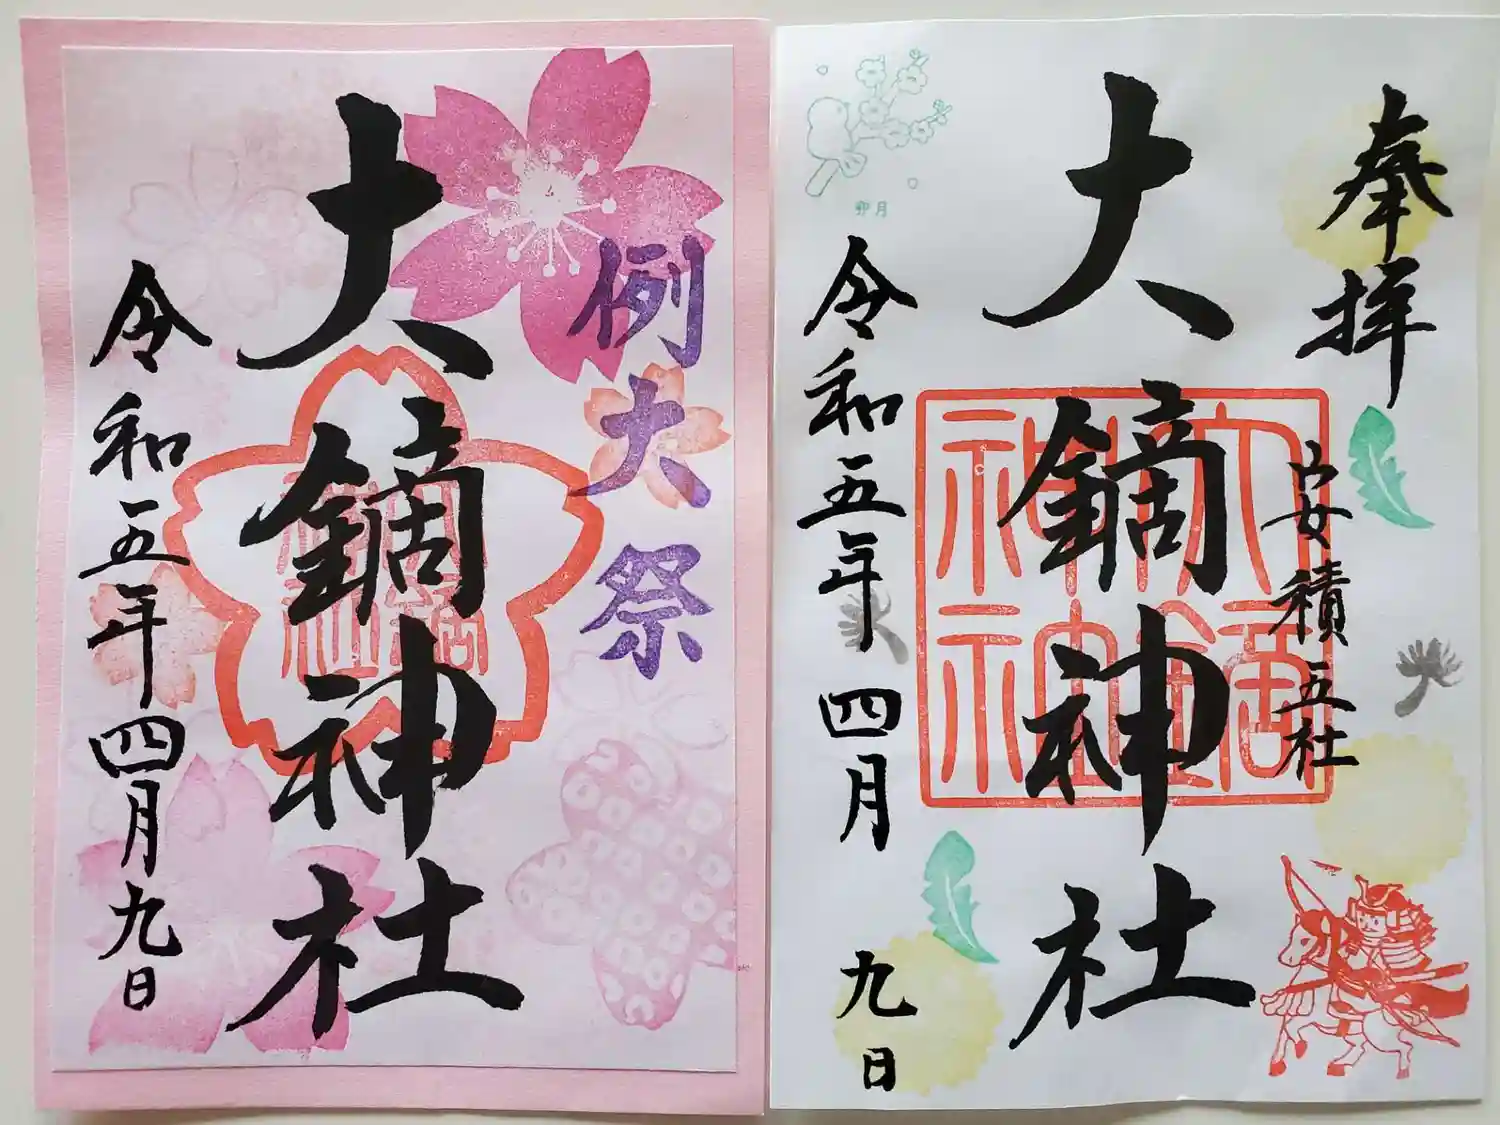 例大祭
大鏑神社
令和五年四月九日
奉拝
安積五社
大鏑神社
大鏑神社
令和五年四月九日
卯月